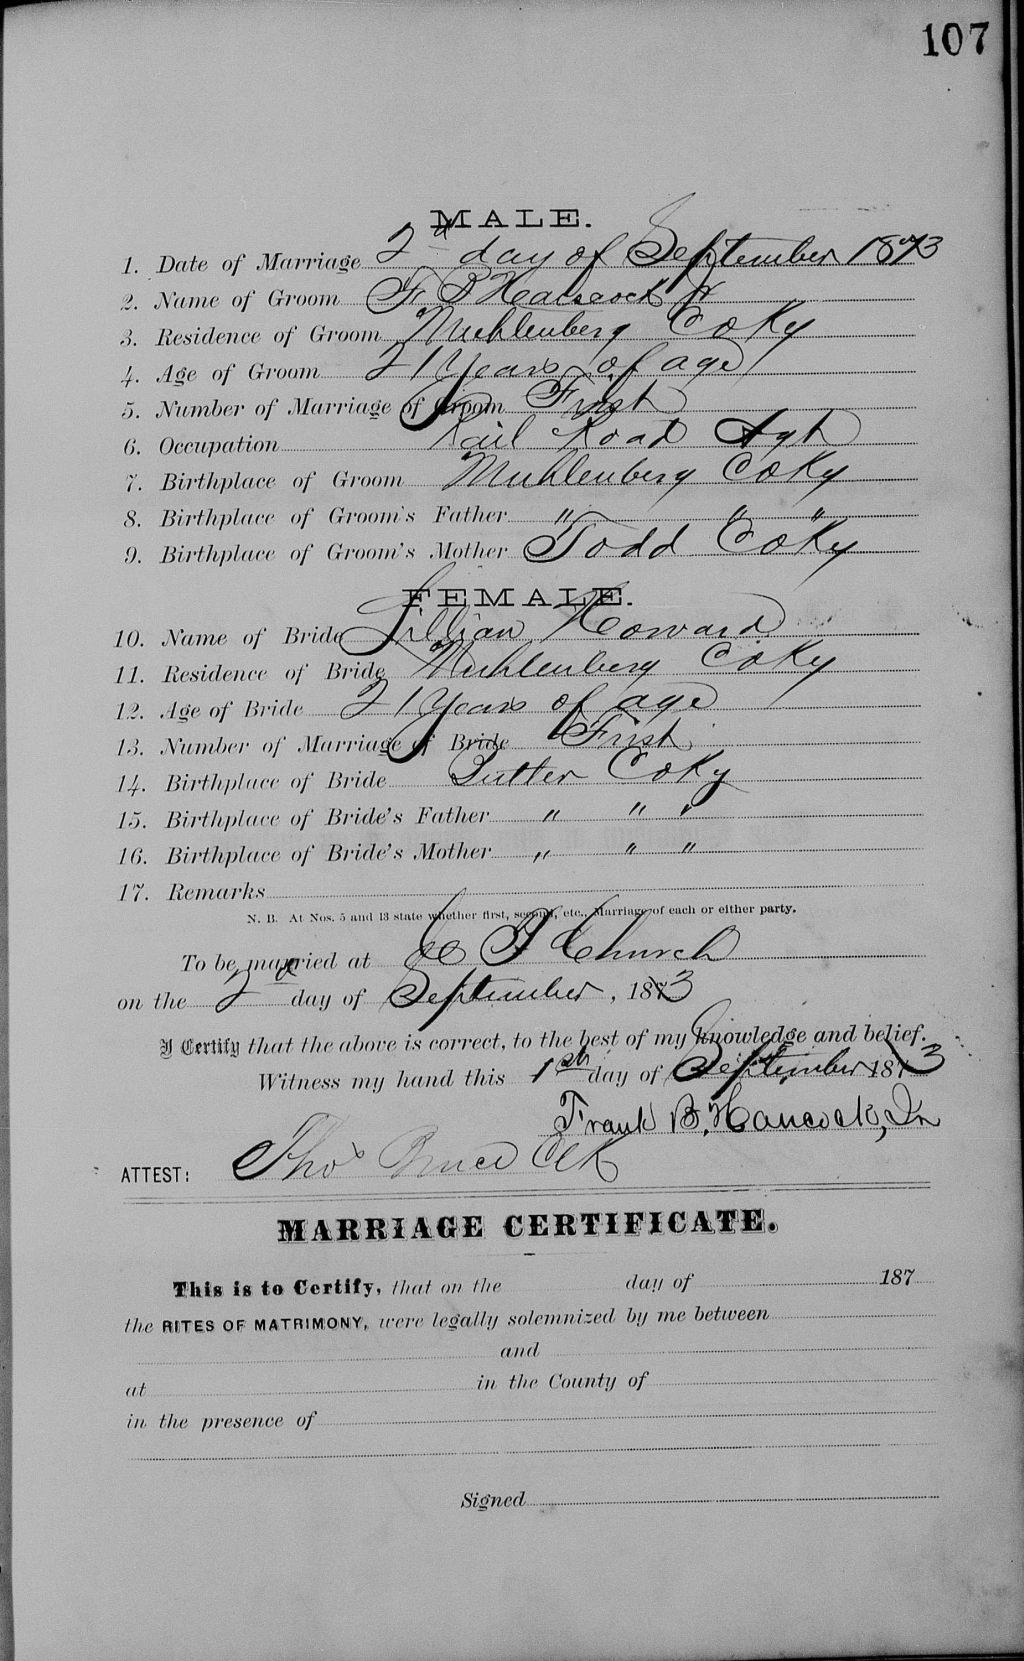 107
MALE.
1. Date of Marriage 2d day of September 1873
2. Name of Groom F B Hancock Jr
3. Residence of Groom Muhlenberg Co Ky
4. Age of Groom 21 Years of age
5. Number of Marriage of Groom First
6. Occupation Rail Road Agt
7. Birthplace of Groom Muhlenberg Co Ky
8. Birthplace of Groom's Father " " "
9. Birthplace of Groom's Mother Todd Co Ky
FEMALE.
10. Name of Bride Lillian Howard
11. Residence of Bride Muhlenberg Co Ky
12. Age of Bride 21 Years of age
13. Number of Marriage of Bride First
14. Birthplace of Bride Butler Co Ky
15. Birthplace of Bride's Father " " "
16. Birthplace of Bride's Mother " " "
17. Remarks
N. B. At Nos. 5 and 13 state whether first, second, etc., Marriage of each or either party.
To be married at Church
on the 2d day of September, 1873
I Certify that the above is correct, to the best of my knowledge and belief.
Witness my hand this 1st day of September 1873
Frank B. Hancock, Jr
ATTEST: Thos Bruce Clk
MARRIAGE CERTIFICATE.
This is to Certify, that on the day of 187
the RITES OF MATRIMONY, were legally solemnized by me between
and
at in the County of
in the presence of
Signed